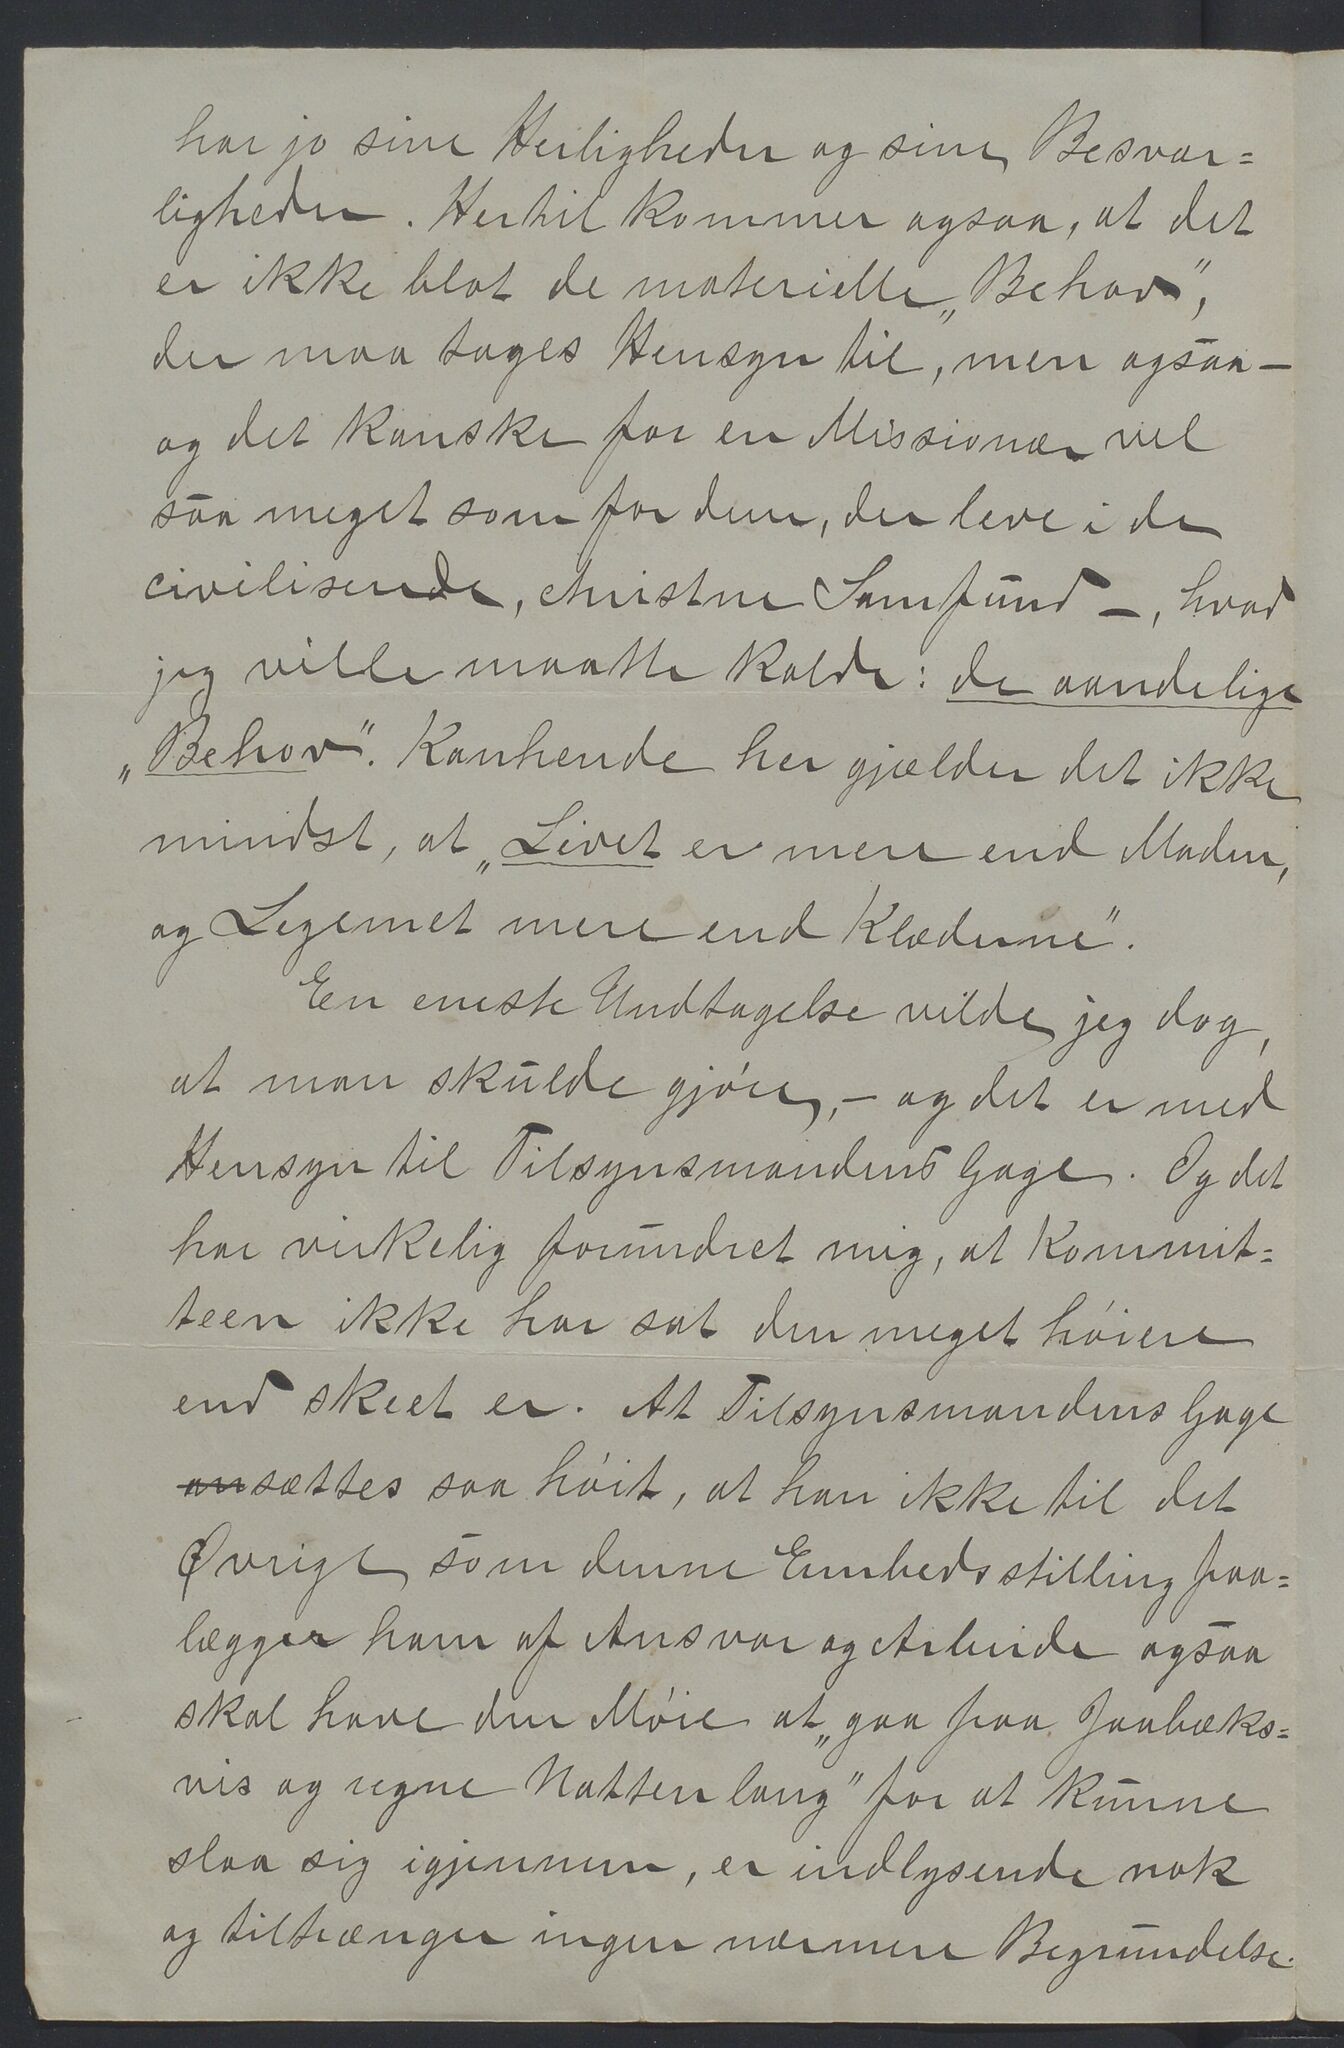 har jo sine Herligheder og sine Besvær=
ligheder. Hertil kommer ogsaa, at det
er ikke blot de materielle „Behov",
der maa tages Hensyn til, men ogsaa —
og det kanske for en Missionær vel
saa meget som for dem, der leve i de
civiliserede, christne Samfund —, hvad
jeg ville maatte kalde: de aandelige
„Behov". Kanhende her gjælder det ikke
mindst, at „Livet er mere end Maden,
og Legemet mere end Klæderne".
En eneste Undtagelse vilde jeg dog,
at man skulde gjöre, — og det er med
Hensyn til Tilsynsmandens Gage. Og det
har virkelig forundret mig, at Kommit=
teen ikke har sat den meget höiere
end skeet er. At Tilsynsmandens Gage
ansættes saa höit, at han ikke til det
Øvrige som denne Embedsstilling paa=
lægger ham af Ansvar og Arbeide ogsaa
skal have den Möie at „gaa paa Jaabæks=
vis og regne Natten lang" for at kunne
slaa sig igjennem, er indlysende nok
og tiltrænger ingen nærmere Begrundelse.